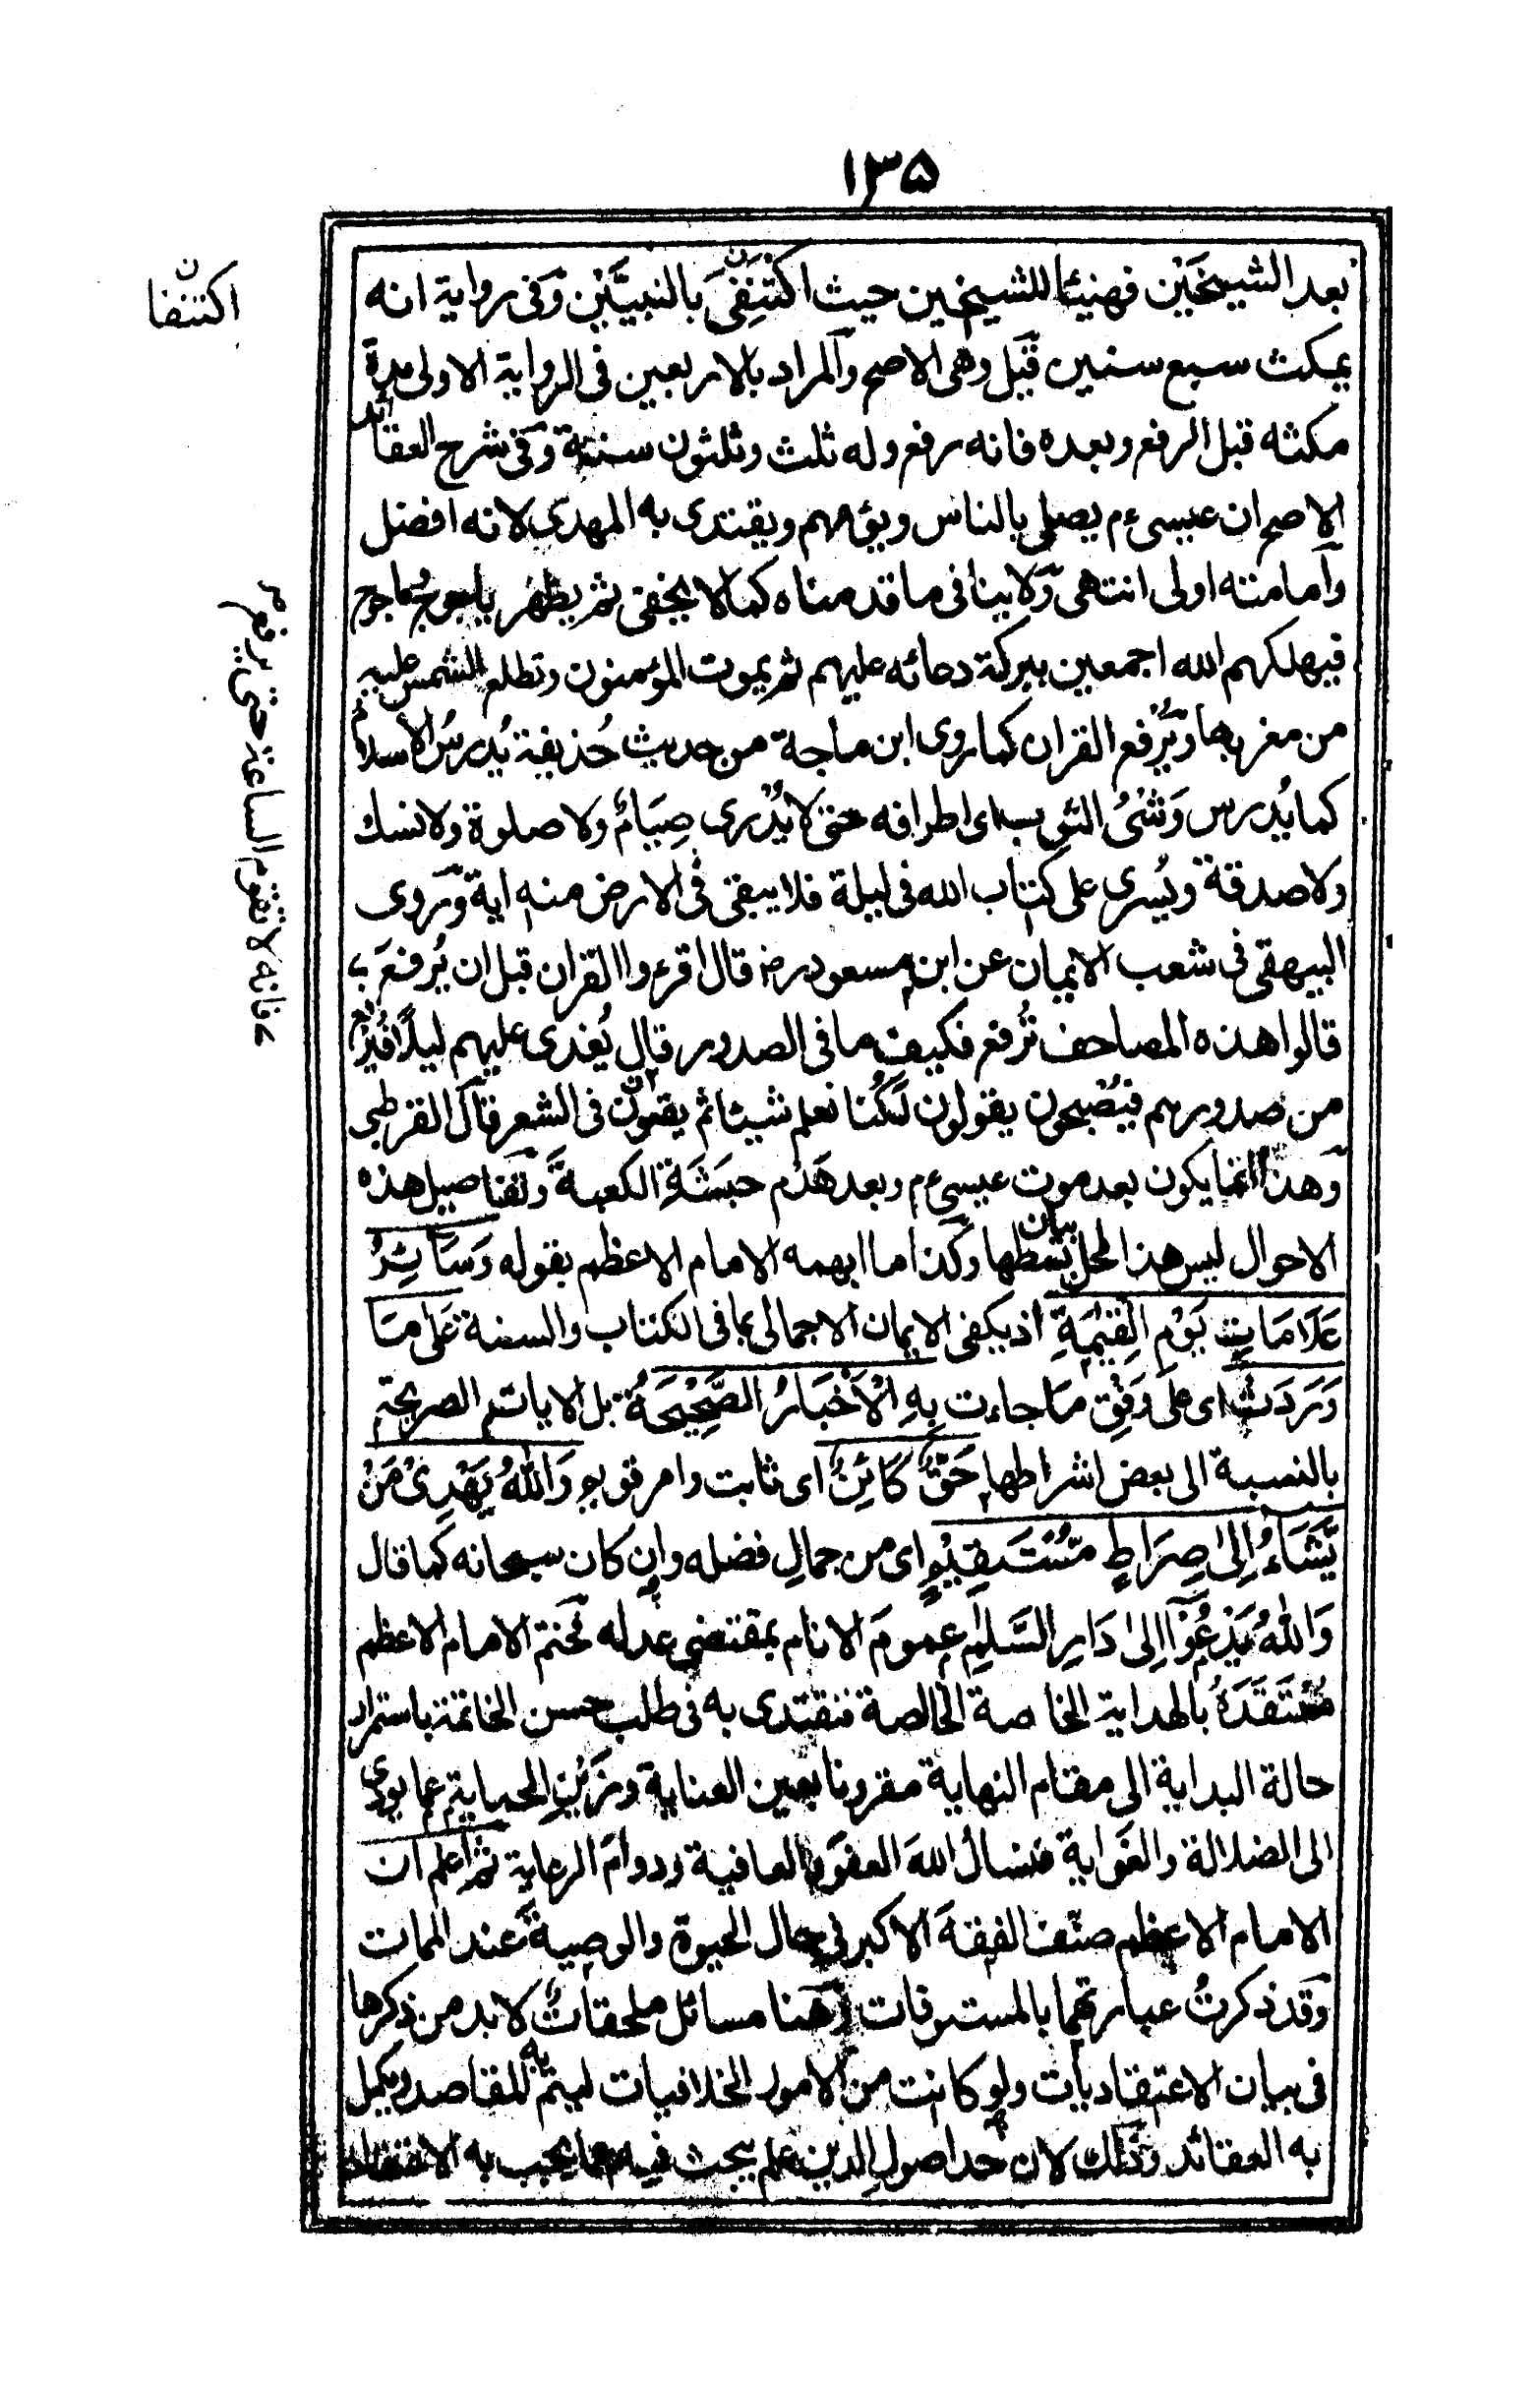 ١٣۵
بعد الشيخَيْن فهنيئا للشيخين حيث اكتنفى بالنبيَّيْن وفى رواية انه
يمكث سبع سنين قيل وهى الاصح والمراد بالاربعين فى الرواية الاولى مدة
مكثه قبل الرفع وبعده فانه رفع وله ثلث وثلثون سنة وفى شرح العقائد
الاصح ان عيسىٰ ءم يصلى بالناس ويؤمهم ويقتدى به المهدى لانه افضل
وامامته اولى انتهى ولا ينافى ما قدمناه كما لا يخفى ثم يظهر ياجوج وماجوج
فيهلكهم الله اجمعين ببركة دعائه عليهم ثم يموت المؤمنون وتطلع الشمس
من مغربها ويُرفع القران كما روى ابن ماجة من حديث حُذيفة يُدرسُ الاسلام
كما يُدرس وَشْىُ الثوب اى اطرافه حتى لا يُدْرى صِيَامٌ ولا صلوة ولا نسك
ولا صدقة ويُسرى على كتاب الله فى ليلة فلا يبقى فى الارض منه اية وروى
البيهقى فى شعب الايمان عن ابن مسعود رض قال اقرءوا القران قبل ان يُرفعَ
قالوا هذه المصاحف تُرفع فكيف ما فى الصدور قال يُغدى عليهم ليلًا فيُرفع
من صدورهم فيُصْبحون يقولون لَكُنا نعلم شيئا ثم يقعون فى الشعر قال القرطبى
وهذا انما يكون بعد موت عيسى ءم وبعد هَدْم حبشَةِ الكعبةَ وتفاصيل هذه
الاحوال ليس هذا المحل بيان بسطها وكذا ما ابهمه الامام الاعظم بقوله وَسَائِرُ
عَلَامَاتِ يَوْمِ الْقِيٰمَةِ اذ يكفى الايمان الاجمالى بما فى الكتاب والسنة عَلى مَا
وَرَدَتْ اى على وَفْقِ مَا جاءت بِهِ الْاَخْبَارُ الصَّحِيْحَةُ بل الايات الصريحة
بالنسبة الى بعض اشراطها حَقٌّ كَائِنٌ اى ثابت وامر قوى وَاللّٰهُ يَهْدِىْ مَنْ
يَّشَاءُ اِلىٰ صِرَاطٍ مُّسْتَقِيْمٍ اى من جمالِ فضله وان كان سبحانه كما قال
وَاللّٰهُ يَدْعُوْآ اِلىٰ دَارِ السَّلٰمِ عمومَ الانام بمقتضى عدله فختم الامام الاعظم
مُعْتَقَدَهُ بالهداية الخاصة الخالصة فنقتدى به فى طلب حسن الخاتمة باستمرار
حالة البداية الى مقام النهاية مقرونا بعين العناية وزَيْنِ الحماية عما يودى
الى الضلالة والغَواية فنسال اللهَ العفو والعافية ودوامَ الرعاية ثم اعلم ان
الامام الاعظم صنّف الفقهَ الاكبر فى حال الحيوة والوصيةَ عند الممات
وقد ذكرتُ عبارتهما بالمستوفات وههنا مسائل ملحقاتٌ لا بد من ذكرها
فى بيان الاعتقاديات ولو كانت من الامور الخلافيات ليتم به المقاصد ويكمل
به العقائد وذلك لان حد اصول الدين علم يبحث فيه عما يجب به الاعتقاد
اكتنفا
فانه لا تقوم الساعة حتى يرفع